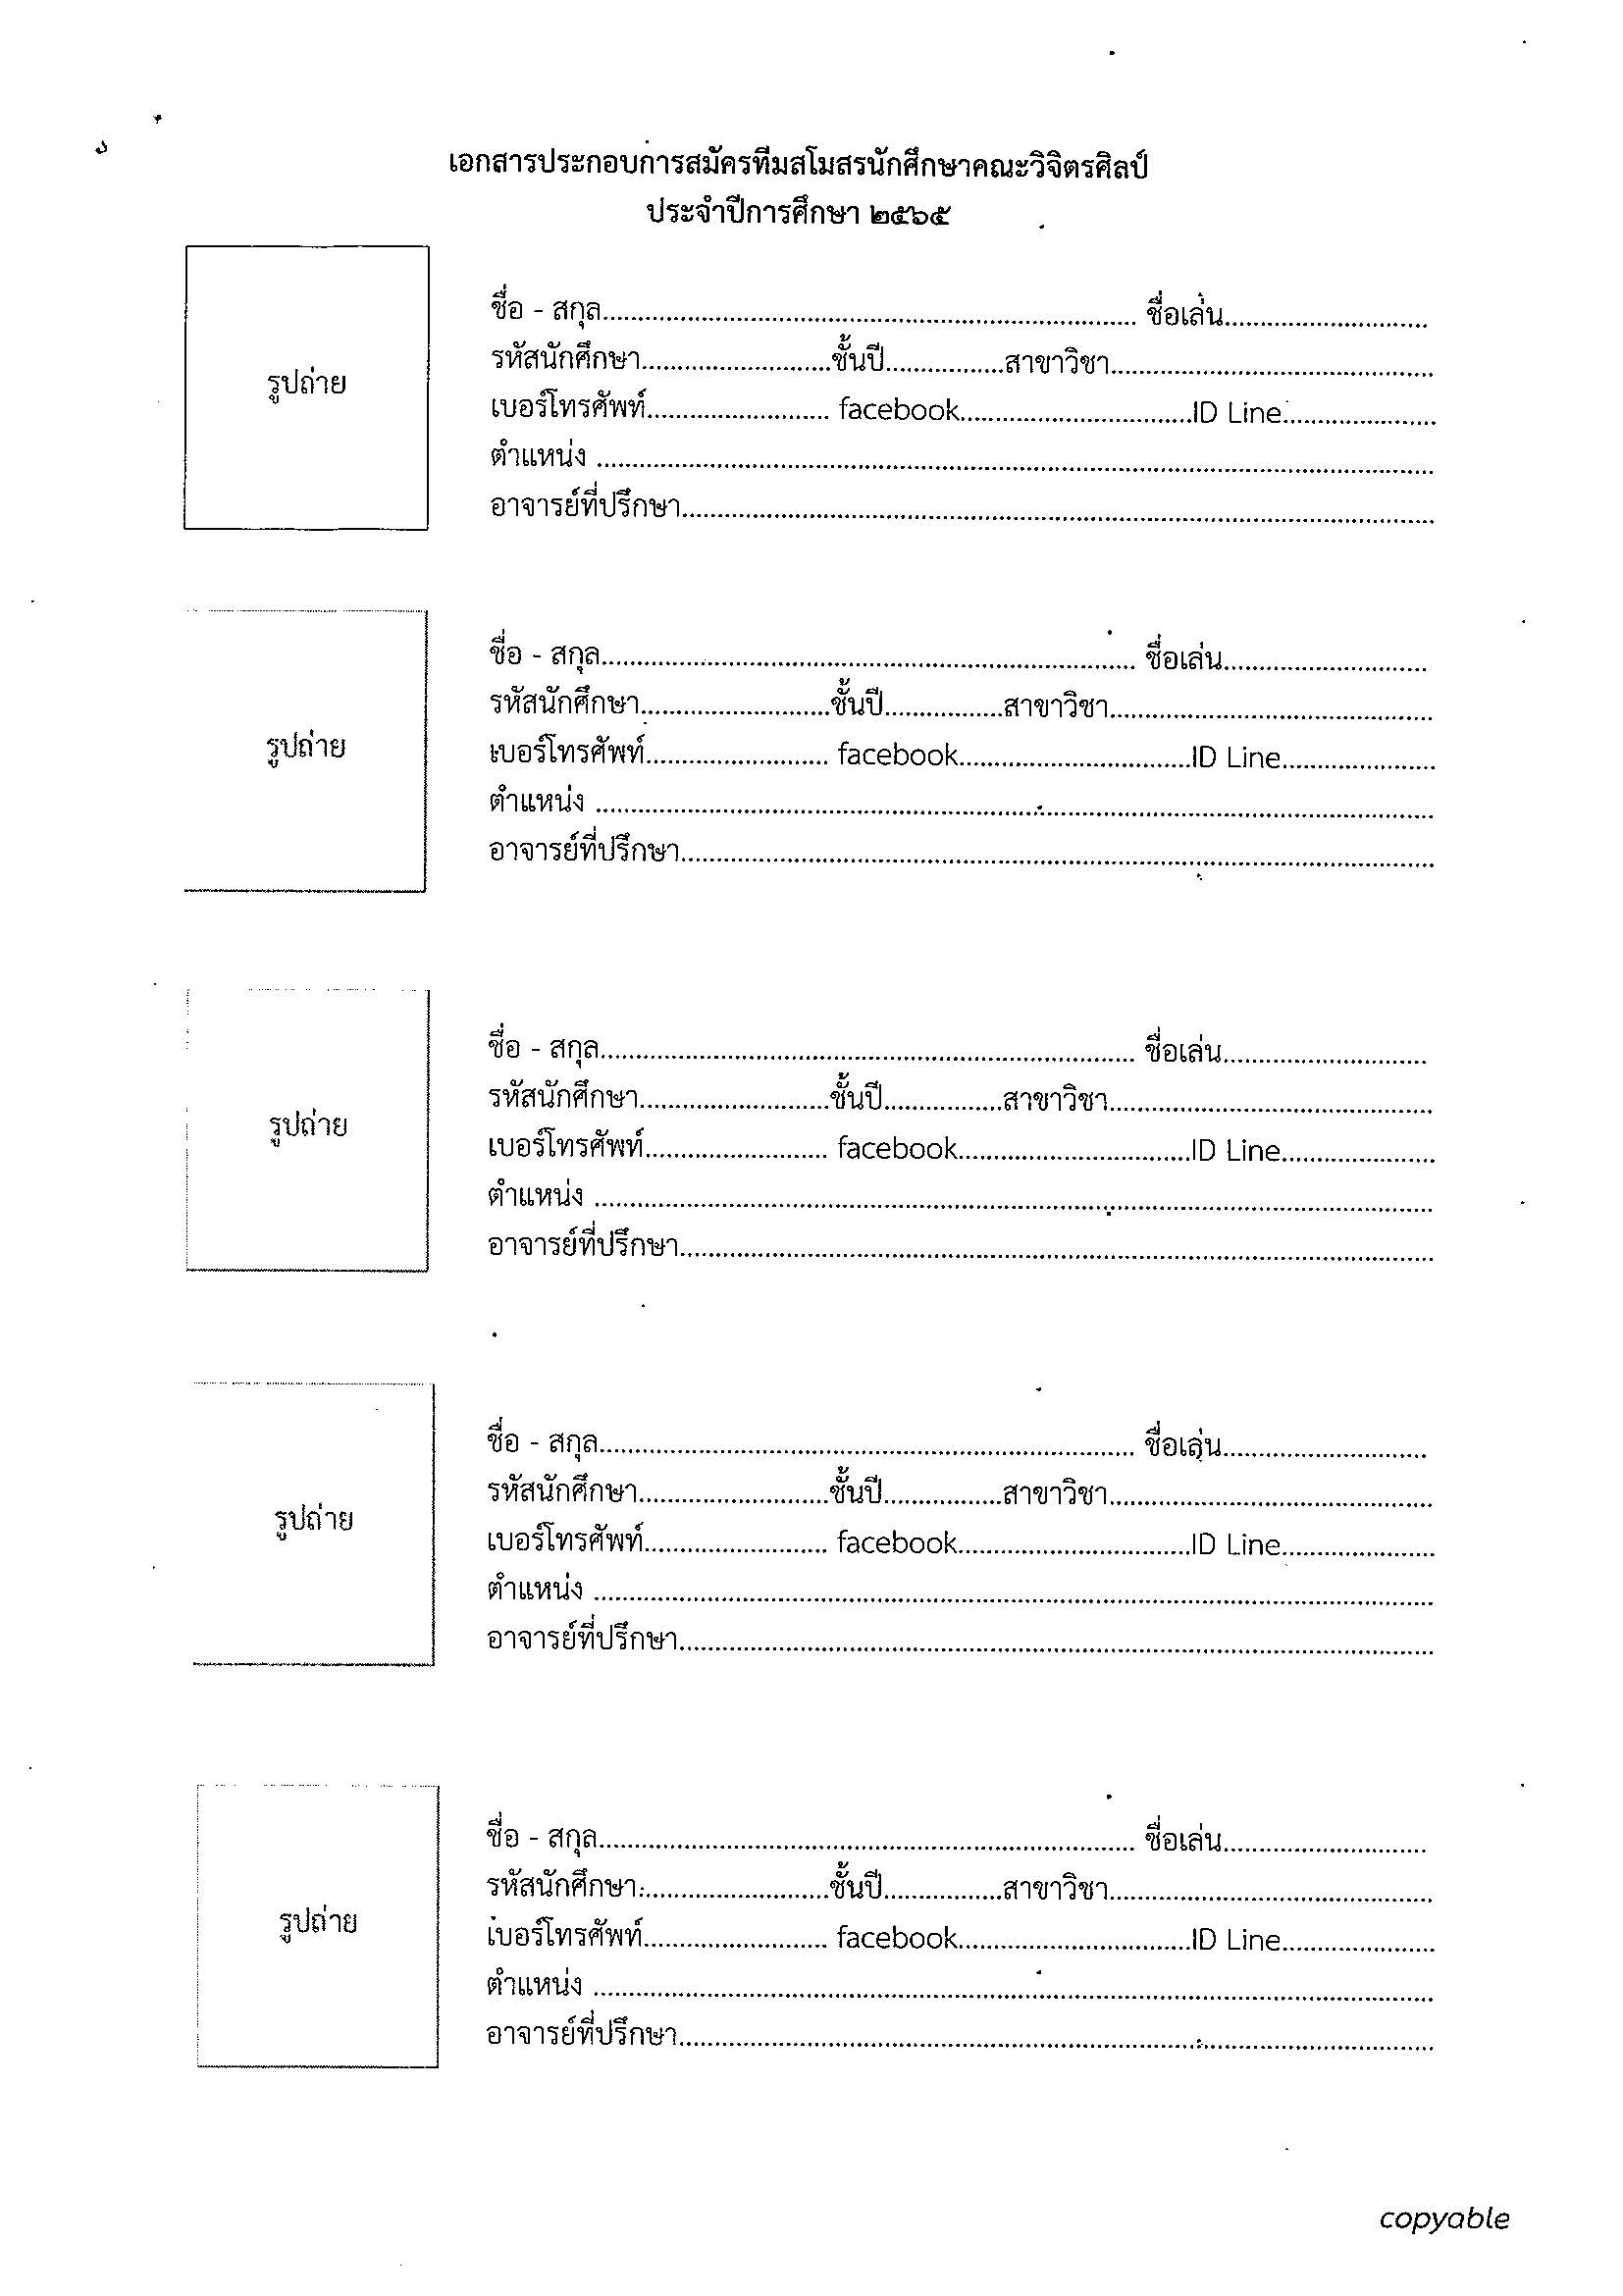 เอกสารประกอบการสมัครทีมสโมสรนักศึกษาคณะวิจิตรศิลป์
ประจำปีการศึกษา ๒๕๖๕
รูปถ่าย
ชื่อ - สกุล.................... ชื่อเล่น....................
รหัสนักศึกษา....................ชั้นปี....................สาขาวิชา....................
เบอร์โทรศัพท์.................... facebook....................ID Line....................
ตำแหน่ง ....................
อาจารย์ที่ปรึกษา....................
รูปถ่าย
ชื่อ - สกุล.................... ชื่อเล่น....................
รหัสนักศึกษา....................ชั้นปี....................สาขาวิชา....................
เบอร์โทรศัพท์.................... facebook....................ID Line....................
ตำแหน่ง ....................
อาจารย์ที่ปรึกษา....................
รูปถ่าย
ชื่อ - สกุล.................... ชื่อเล่น....................
รหัสนักศึกษา....................ชั้นปี....................สาขาวิชา....................
เบอร์โทรศัพท์.................... facebook....................ID Line....................
ตำแหน่ง ....................
อาจารย์ที่ปรึกษา....................
รูปถ่าย
ชื่อ - สกุล.................... ชื่อเล่น....................
รหัสนักศึกษา....................ชั้นปี....................สาขาวิชา....................
เบอร์โทรศัพท์.................... facebook....................ID Line....................
ตำแหน่ง ....................
อาจารย์ที่ปรึกษา....................
รูปถ่าย
ชื่อ - สกุล.................... ชื่อเล่น....................
รหัสนักศึกษา....................ชั้นปี....................สาขาวิชา....................
เบอร์โทรศัพท์.................... facebook....................ID Line....................
ตำแหน่ง ....................
อาจารย์ที่ปรึกษา....................
copyable